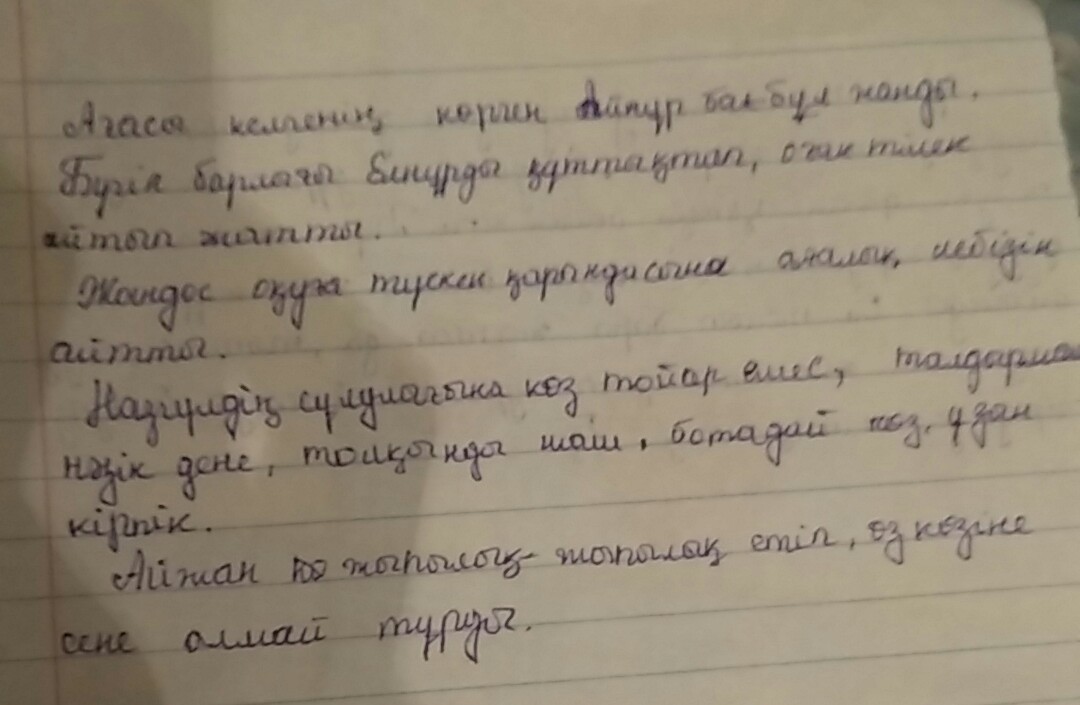 Ағасы келгенің көрген Айнұр бал бұл жанды.
Бүгін барлығы Елнұрды құттықтап, оған тілек
айтып жатты.
Жандос оқуға түскен қарындасына ағалық лебізін
айтты.
Назгүлдің сұлулығына көз тояр емес, талдырмаш
нәзік дене, толқынды шаш, ботадай көз, ұзан
кірпік.
Айжан жыпылық-жыпылық етіп, өз көзіне
сене алмай тұрды.